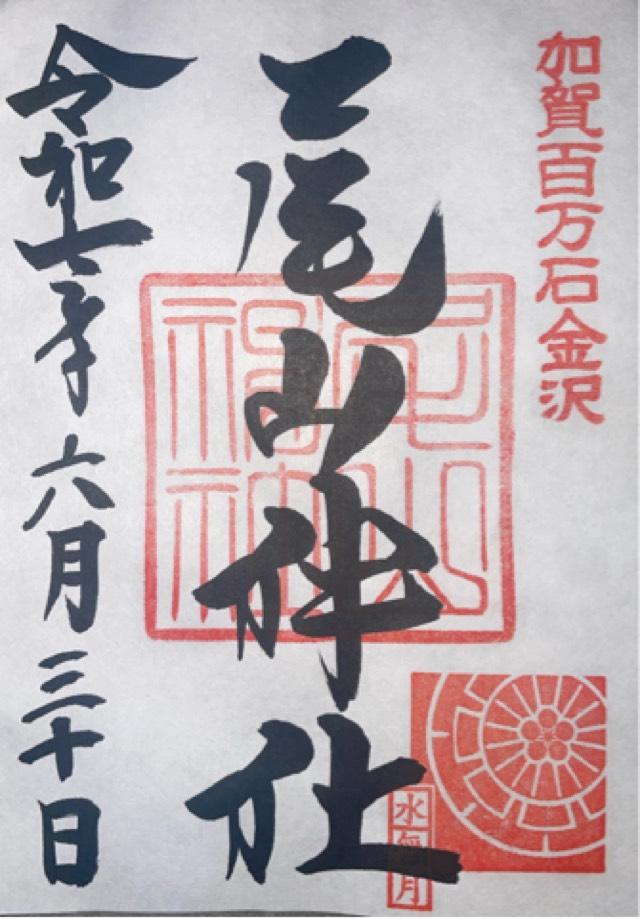 加賀百万石金沢
尾山神社
尾山神社
水無月
令和七年六月三十日